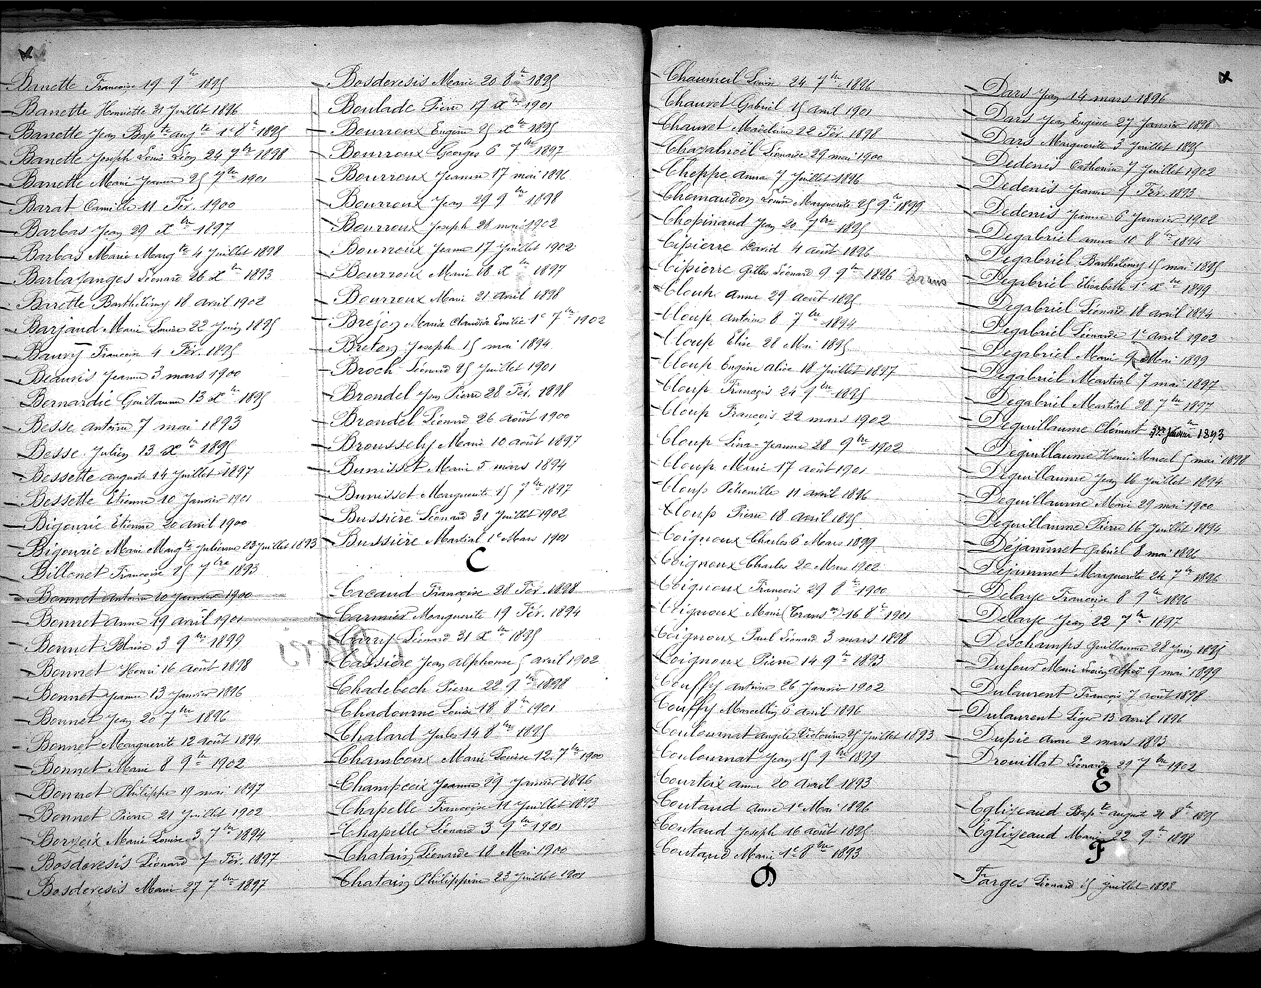 Banette Françoise 19 9bre 1895
Banette Henriette 31 Juillet 1896
Banette Jean Bapte augte 1er 8bre 1895
Banette Joseph Louis Léon 24 7bre 1898
Banette Marie Jeanne 25 7bre 1901
Barat Camille 11 Fév. 1900
Barbas Jean 29 Xbre 1897
Barbas Marie Margte 4 Juillet 1898
Barlazanges Léonard 26 Xbre 1893
Barotte Barthélémy 18 avril 1902
Barjaud Marie Louise 22 Juin 1895
Baury Françoise 4 Fév. 1895
Beausis Jeanne 3 mars 1900
Bernardie Guillaume 13 Xbre 1895
Besse antoine 7 mai 1893
Besse Julien 13 Xbre 1895
Bessette auguste 14 Juillet 1897
Bessette Etienne 20 Janvier 1901
Bigourie Etienne 20 avril 1900
Bigourie Marie Margte Julienne 23 Juillet 1893
Billonet Françoise 25 7bre 1893
Bonnet Antoine 20 Janvier 1900
Bonnet anna 19 avril 1901
Bonnet Blaise 3 9bre 1899
Bonnet Henri 16 août 1898
Bonnet Jeanne 13 Janvier 1896
Bonnet Jean 26 7bre 1896
Bonnet Marguerite 12 août 1894
Bonnet Marie 8 9bre 1902
Bonnet Philippe 19 mai 1897
Bonnet Pierre 21 Juillet 1902
Borzeix Marie Louise 3 7bre 1894
Bosderesis Léonard 7 Fév. 1897
Bosderesis Marie 27 7bre 1897
Bosderesis Marie 20 8bre 1895
Boulade Pierre 17 Xbre 1901
Bourroux Eugène 25 Xbre 1895
Bourroux Georges 6 7bre 1897
Bourroux Jeanne 17 mai 1896
Bourroux Jean 29 9bre 1898
Bourroux Joseph 28 mai 1902
Bourroux Jeanne 17 Juillet 1902
Bourroux Marie 16 Xbre 1897
Bourroux Marie 21 avril 1898
Bréjon Maria Claudia Emilie 1er 7bre 1902
Breton Joseph 15 mai 1894
Broch Léonard 25 Juillet 1901
Brondel Jean Pierre 28 Fév. 1898
Brondel Léonard 26 août 1900
Broussely Marie 10 août 1897
Bunisset Marie 5 mars 1894
Bunisset Marguerite 15 7bre 1897
Bussière Léonard 31 Juillet 1902
Bussière Martial 1er Mars 1901
C
Cacaud Françoise 28 Fév. 1898
Carmier Marguerite 19 Fév. 1894
Léonard 31 Xbre 1895
Cassière Jean alphonse 5 avril 1902
Chadebech Pierre 22 9bre 1898
Chadourne Louise 18 8bre 1901
Chalard Jules 14 8bre 1895
Chamboux Marie Louise 12 7bre 1900
Champeaix Jeanne 29 Janvier 1896
Chapelle Françoise 11 Juillet 1893
Chapelle Léonard 3 9bre 1901
Chatain Léonarde 18 Mai 1900
Chatain Philippine 23 Juillet 1901
Chaumeil Louise 24 7bre 1896
Chauvet Gabriel 15 avril 1901
Chauvet Madeleine 22 Fév. 1898
Chazalnoël Léonarde 29 mai 1900
Cheppe anna 7 Juillet 1896
Chemaudon Louise Marguerite 25 9bre 1899
Chopinaud Jean 20 7bre 1895
Cipierre David 4 août 1896
Cipierre Gilles Léonard 9 9bre 1896
Cloup anna 29 août 1895
Cloup Antoine 8 7bre 1894
Cloup Elie 28 Mai 1895
Cloup Eugène alice 18 Juillet 1897
Cloup François 24 9bre 1895
Cloup François 22 mars 1902
Cloup Léna Jeanne 28 9bre 1902
Cloup Marie 17 août 1901
Cloup 11 avril 1896
Cloup Pierre 18 avril 1895
Coignoux Charles 6 Mars 1899
Coignoux Charles 20 Mars 1902
Coignoux François 29 8bre 1900
Coignoux Marie (Transon) 16 8bre 1901
Coignoux Paul Léonard 3 mars 1898
Coignoux Pierre 14 9bre 1893
Couffy antoine 26 Janvier 1902
Couffy Marcellin 6 avril 1896
Coulournat angèle Victorine 25 Juillet 1893
Coulournat Jean 15 9bre 1899
Courteix anna 20 avril 1893
Coutaud anna 1er Mai 1896
Coutaud Joseph 16 août 1895
Coutaud Marie 1er 8bre 1893
D
Dars Jean 14 mars 1896
Dars Jean Eugène 27 Janvier 1898
Dars Marguerite 3 Juillet 1895
Dedenis Catherine 7 Juillet 1902
Dedenis Jeanne 9 Fév. 1893
Dedenis Jeanne 6 Janvier 1902
Degabriel anna 10 8bre 1894
Degabriel Barthélémy 15 mai 1895
Degabriel Elisabeth 1er Xbre 1899
Degabriel Léonard 18 avril 1894
Degabriel Léonarde 1er avril 1902
Degabriel Marie 9 Mai 1899
Degabriel Martial 7 mai 1897
Degabriel Martial 28 7bre 1897
Deguillaume Clément Janvier 1893
Deguillaume Henri Marcel 15 mai 1898
Deguillaume Jean 16 Juillet 1894
Deguillaume Marie 29 mai 1900
Deguillaume Pierre 16 Juillet 1894
Déjammet Gabriel 8 mai 1896
Dejammet Marguerite 24 7bre 1896
Delarse Françoise 8 9bre 1896
Delarse Jean 22 7bre 1897
Deschamps Guillaume 28 Juin 1895
Dufour Marie Louise 9 mai 1899
Dulaurent François 7 août 1898
Dulaurent Léger 13 avril 1896
Dupic anna 2 mars 1893
Drouillat Léonarde 29 7bre 1902
E
Eglizeaud Bapte auguste 21 8bre 1895
Eglizeaud Marie 22 9bre 1898
F
Farges Léonard 15 Juillet 1893